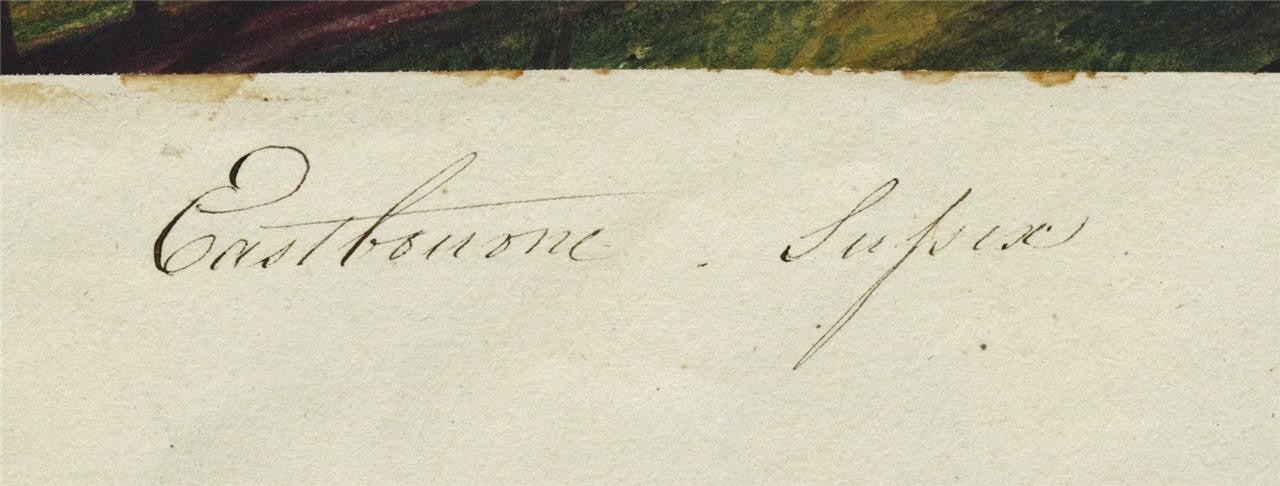 Eastbourne . Sussex